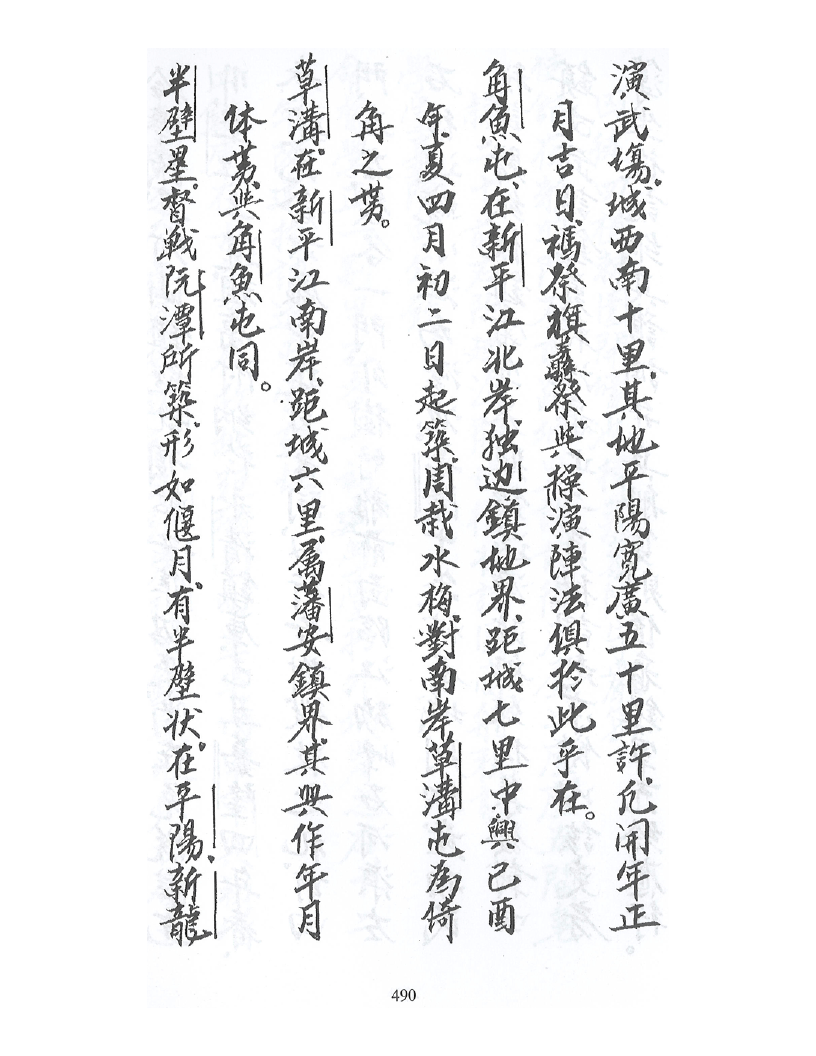 演武場。城西南十里。其地平陽寬廣五十里許。凡開年正
月吉日、禡祭旗纛祭、與操演陣法俱扵此乎在。
角魚屯、在新平江北岸、独边鎮地界、距城七里、中興己酉
年夏四月初二日起築。周栽水梅。對南岸草溝屯為倚
角之势。
草溝屯在新平江南岸、距城六里。属藩安鎮界。其興作年月
体势與角魚屯同。
半壁壘。督戦阮潭所築。形如偃月。有半壁状。在平陽、新龍
490